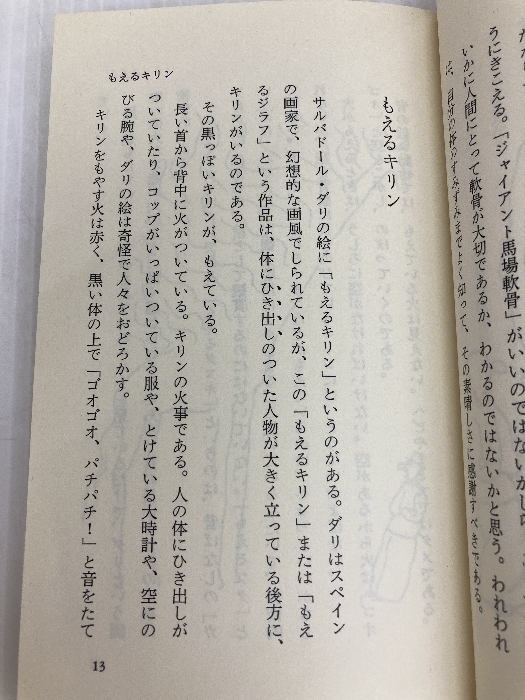 うにきこえる。「ジャイアント馬場軟骨」がいいのではないかしら
いかに人間にとって軟骨が大切であるか、わかるのではないかと思う。われわれ
その素晴しさに感謝すべきである。
もえるキリン
もえるキリン
サルバドール・ダリの絵に「もえるキリン」というのがある。ダリはスペイン
の画家で、幻想的な画風でしられているが、この「もえるキリン」または「もえ
るジラフ」という作品は、体にひき出しのついた人物が大きく立っている後方に、
キリンがいるのである。
その黒っぽいキリンが、もえている。
長い首から背中に火がついている。キリンの火事である。人の体にひき出しが
ついていたり、コップがいっぱいついている服や、とけている大時計や、空にの
びる腕や、ダリの絵は奇怪で人々をおどろかす。
キリンをもやす火は赤く、黒い体の上で「ゴオゴオ、パチパチ！」と音をたて
13